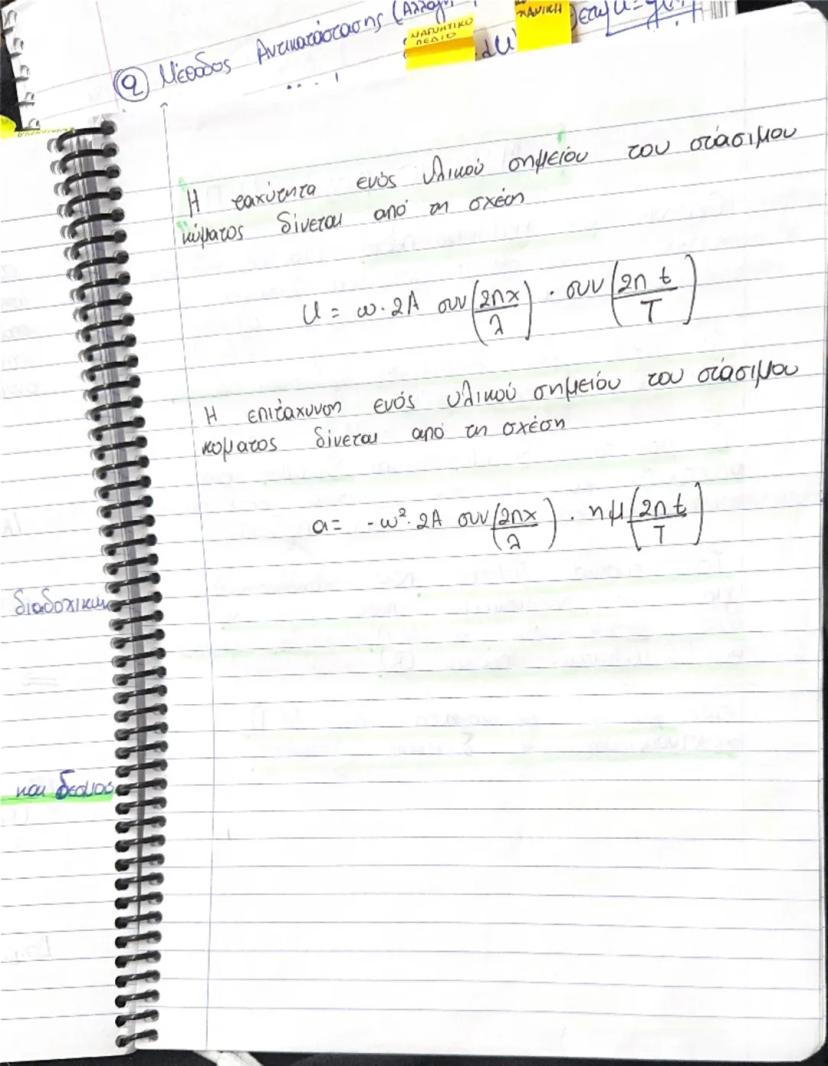 ② Μέθοδος Αντικατάστασης (Αλλαγή
ΜΑΓΝΗΤΙΚΟ
ΠΕΔΙΟ
du
Η ταχύτητα ενός υλικού σημείου του στάσιμου
κύματος δίνεται από τη σχέση
U = ω·2A συν(2πx/λ) · συν(2π t/T)
Η επιτάχυνση ενός υλικού σημείου του στάσιμου
κύματος δίνεται από τη σχέση
a = -ω²·2A συν(2πx/λ) · ημ(2π t/T)
διαδοχικών
και δεσμού